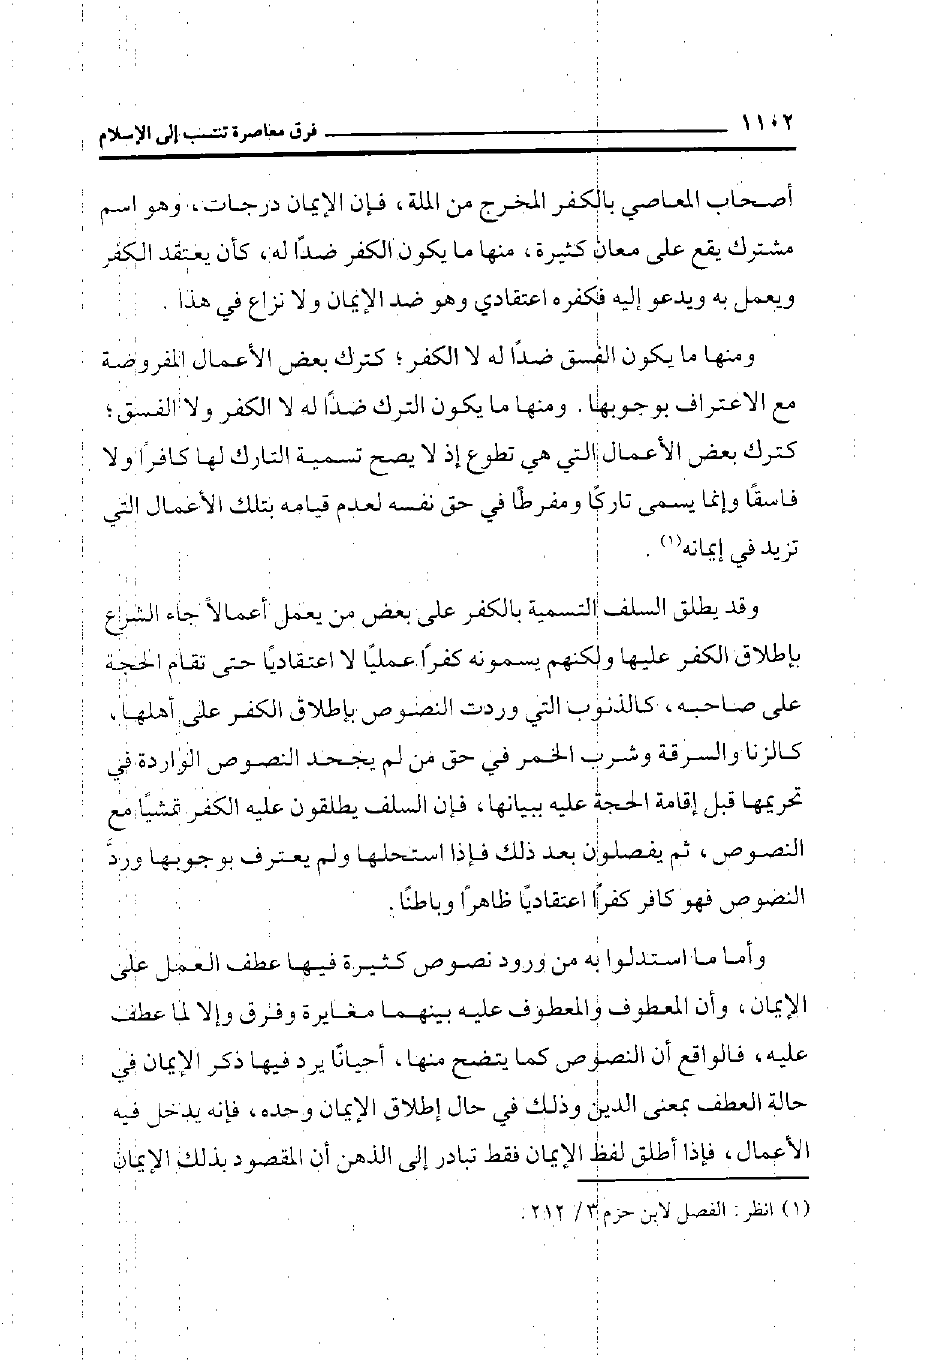 ١١٠٢ فرق معاصرة تنتسب إلى الإسلام
أصحاب المعاصي بالكفر المخرج من الملة، فإن الإيمان درجات، وهو اسم
مشترك يقع على معان كثيرة، منها ما يكون الكفر ضدًا له، كأن يعتقد الكفر
ويعمل به ويدعو إليه فكفره اعتقادي وهو ضد الإيمان ولا نزاع في هذا .
ومنها ما يكون الفسق ضدًا له لا الكفر؛ كترك بعض الأعمال المفروضة
مع الاعتراف بوجوبها. ومنها ما يكون الترك ضدًا له لا الكفر ولا الفسق؛
كترك بعض الأعمال التي هي تطوع إذ لا يصح تسمية التارك لها كافرًا ولا
فاسقًا وإنما يسمى تاركًا ومفرطًا في حق نفسه لعدم قيامه بتلك الأعمال التي
تزيد في إيمانه(١) .
وقد يطلق السلف التسمية بالكفر على بعض من يعمل أعمالاً جاء الشرع
بإطلاق الكفر عليها ولكنهم يسمونه كفرًا عمليًا لا اعتقاديًا حتى تقام الحجة
على صاحبه، كالذنوب التي وردت النصوص بإطلاق الكفر على أهلها،
كالزنا والسرقة وشرب الخمر في حق من لم يجحد النصوص الواردة في
تحريمها قبل إقامة الحجة عليه ببيانها، فإن السلف يطلقون عليه الكفر تمشيًا مع
النصوص، ثم يفصلون بعد ذلك فإذا استحلها ولم يعترف بوجوبها وردَّ
النصوص فهو كافر كفرًا اعتقاديًا ظاهرًا وباطنًا.
وأما ما استدلوا به من ورود نصوص كثيرة فيها عطف العمل على
الإيمان، وأن المعطوف والمعطوف عليه بينهما مغايرة وفرق وإلا لما عطف
عليه، فالواقع أن النصوص كما يتضح منها، أحيانًا يرد فيها ذكر الإيمان في
حالة العطف بمعنى الدين وذلك في حال إطلاق الإيمان وحده، فإنه يدخل فيه
الأعمال، فإذا أطلق لفظ الإيمان فقط تبادر إلى الذهن أن المقصود بذلك الإيمان
(١) انظر: الفصل لابن حزم ٣/ ٢١٢.